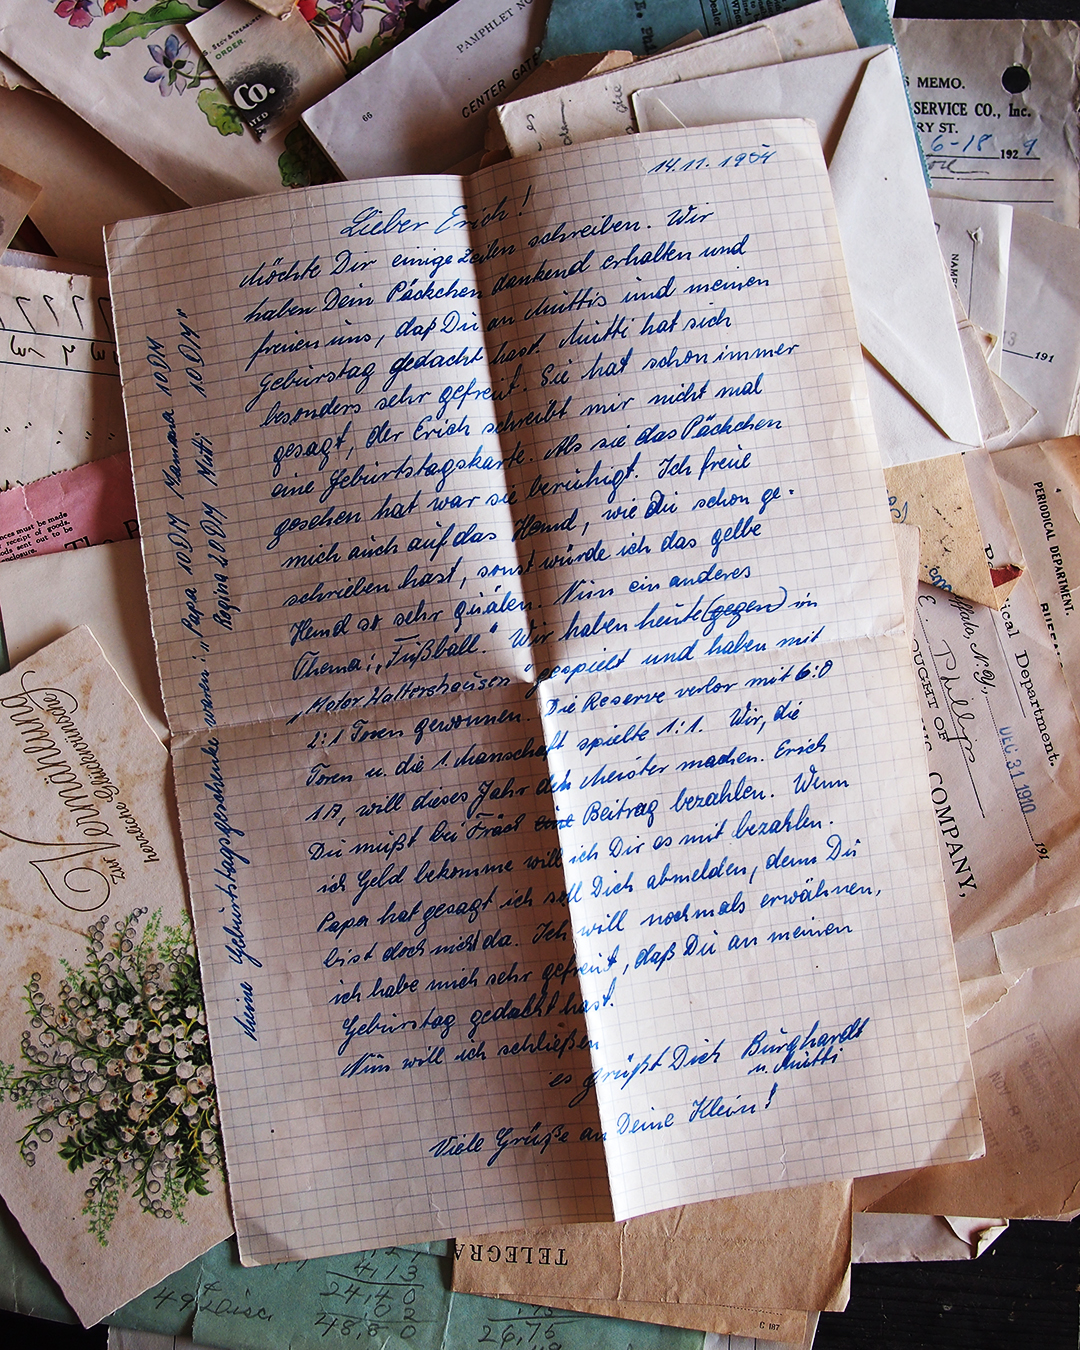 14.11.1954
Lieber Erich!
Möchte Dir einige Zeilen schreiben. Wir
haben Dein Päckchen dankend erhalten und
freuen uns, daß Du an Muttis und meinen
Geburstag gedacht hast. Mutti hat sich
besonders sehr gefreut. Sie hat schon immer
gesagt, der Erich schreibt mir nicht mal
eine Geburtstagskarte. Als sie das Päckchen
gesehen hat war sie beruhigt. Ich freue
mich auch auf das Hemd, wie Du schon ge-
schrieben hast, sonst würde ich das gelbe
Hemd so sehr quälen. Nun ein anderes
Thema: „Fußball." Wir haben heute (gegen) in
„Motor Waltershausen" gespielt und haben mit
2:1 Toren gewonnen. Die Reserve verlor mit 6:0
Toren u. die 1. Manschaft spielte 1:1. Wir, die
1A, will dieses Jahr den Meister machen. Erich
Du mußt bei eine Beitrag bezahlen. Wenn
ich Geld bekomme will ich Dir es mit bezahlen.
Papa hat gesagt ich soll Dich abmelden, denn Du
bist doch nicht da. Ich will nochmals erwähnen,
ich habe mich sehr gefreut, daß Du an meinen
Geburstag gedacht hast.
Nun will ich schließen
es grüßt Dich Burghardt
u. Mutti
Viele Grüße an Deine Klein!
Meine Geburtstagsgeschenke waren: „Papa 10DM Mamma 10DM
Regina 20DM Mutti 10DM"
PAMPHLET NO
66
CENTER GATE
S. SECY & TREASURER
ORDER.
Co.
ATED
S MEMO.
SERVICE CO., Inc.
RY ST.
6-18 1929
NAME
191
PERIODICAL DEPARTMENT.
ical Department.
ffalo, N.Y.,
E. Phillips
OUGHT OF
DEC 31 1910
191
COMPANY,
nces must be made
receipt of goods.
ods sent out to be
enclosure.
Zur Vermählung
herzliche Glückwünsche
TELEGRA
4,13
24,40
.02
48,80
26,75
492 Disc
C 187